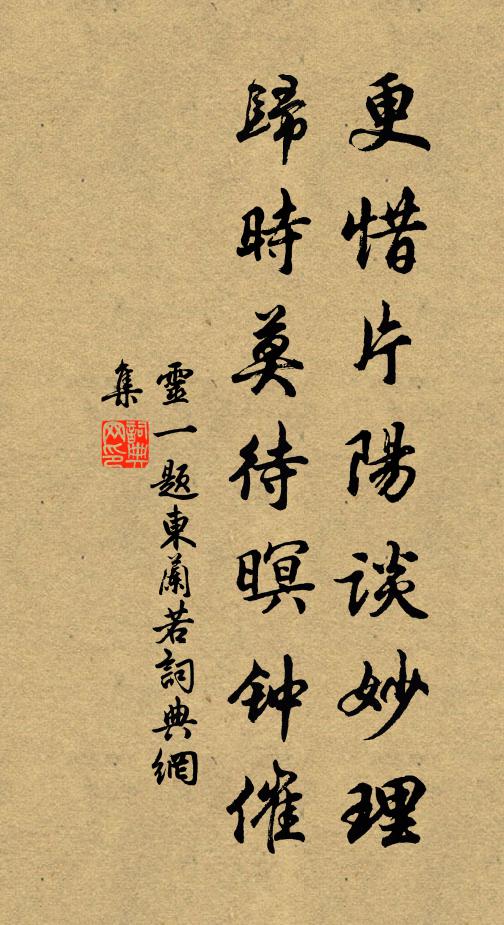 更惜片陽談妙理
歸時莫待暝钟催
靈一題東蘭若詞典網
集
詞典
网印